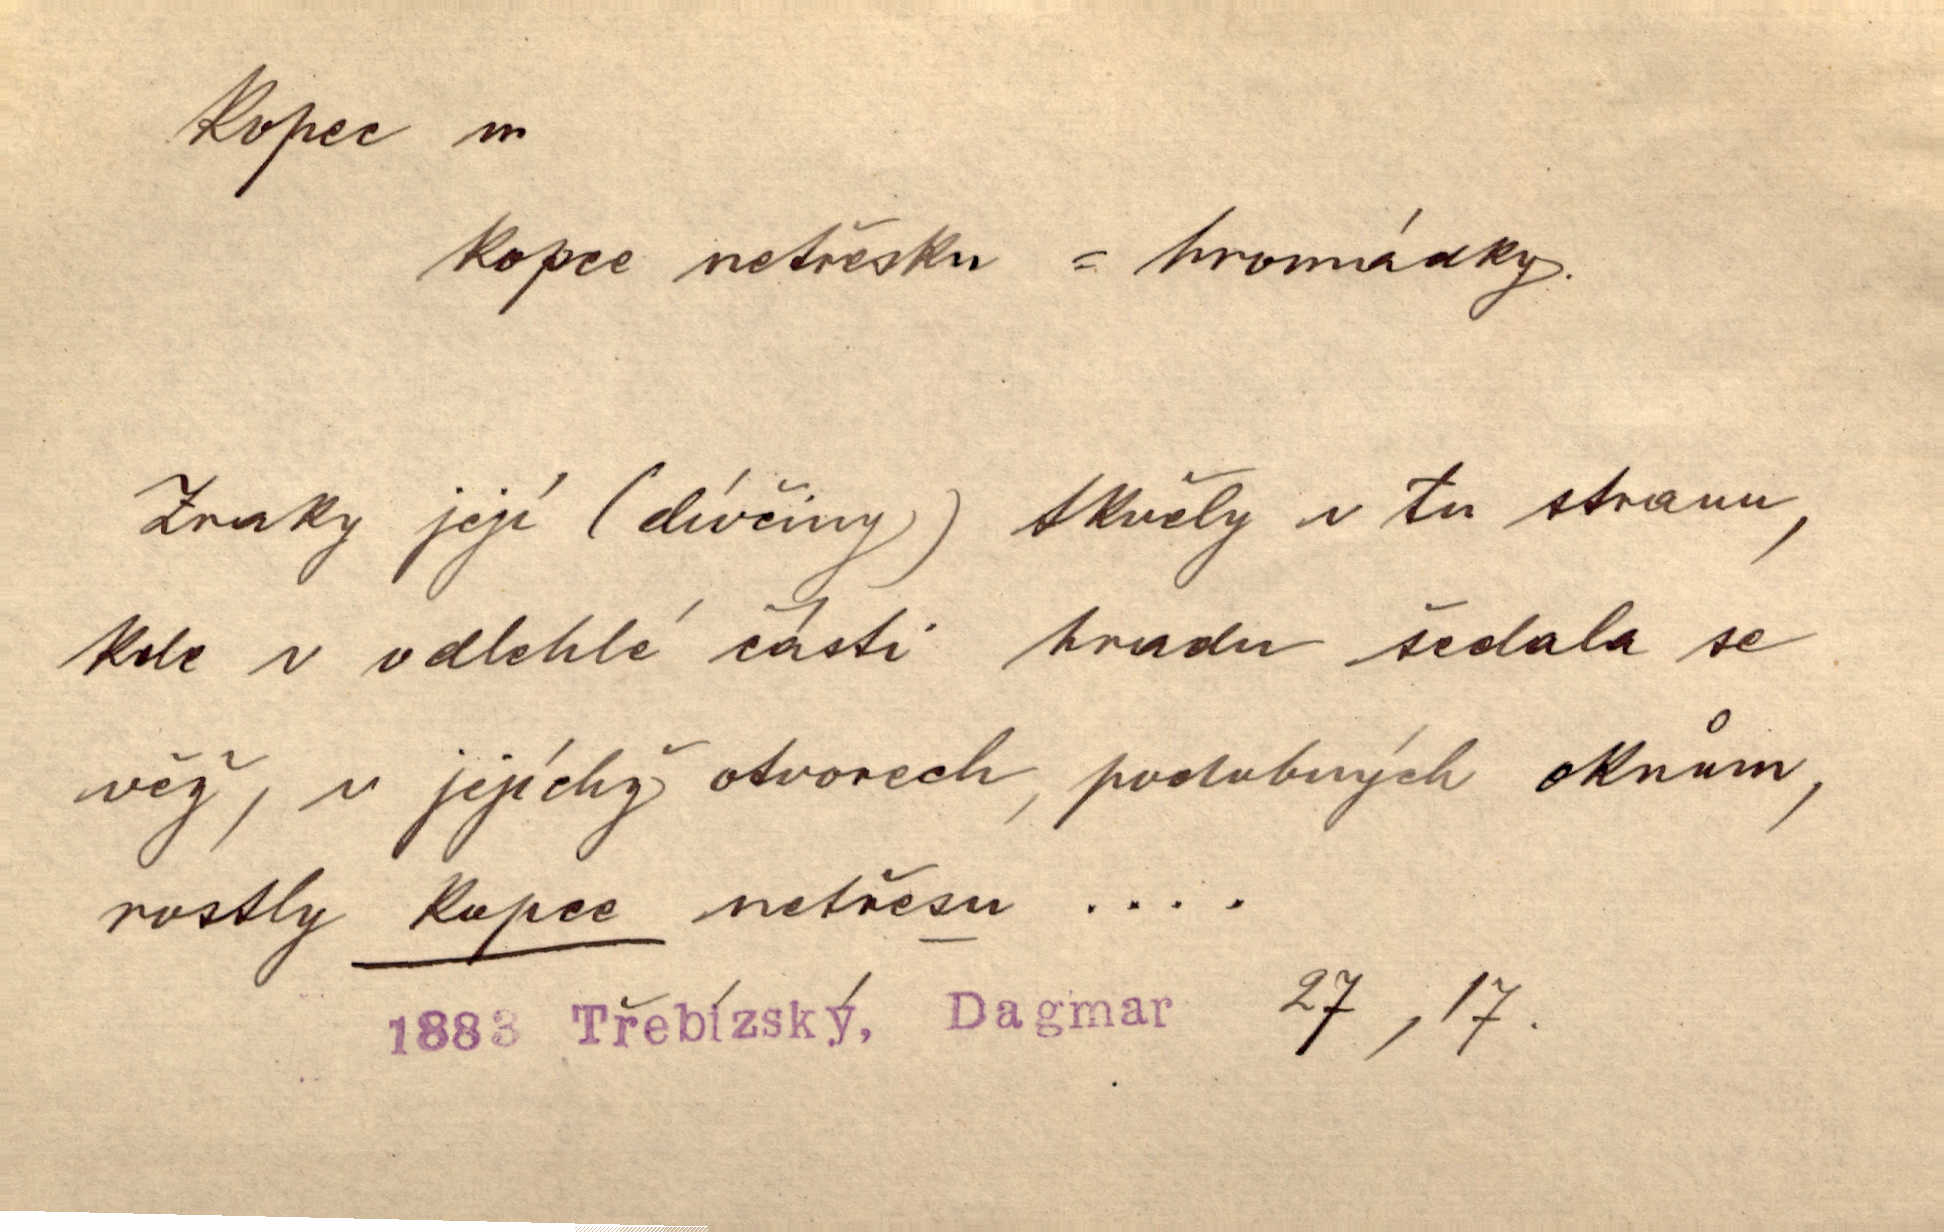 Kopec m
kopce netřesku = hromádky.
Zraky její (dívčiny) tkvěly v tu stranu,
kde v odlehlé části hradu šedala se
věž, v jejíchž otvorech, podobných oknům,
rostly kopce netřesu ....
1883 Třebízský, Dagmar 27, 17.